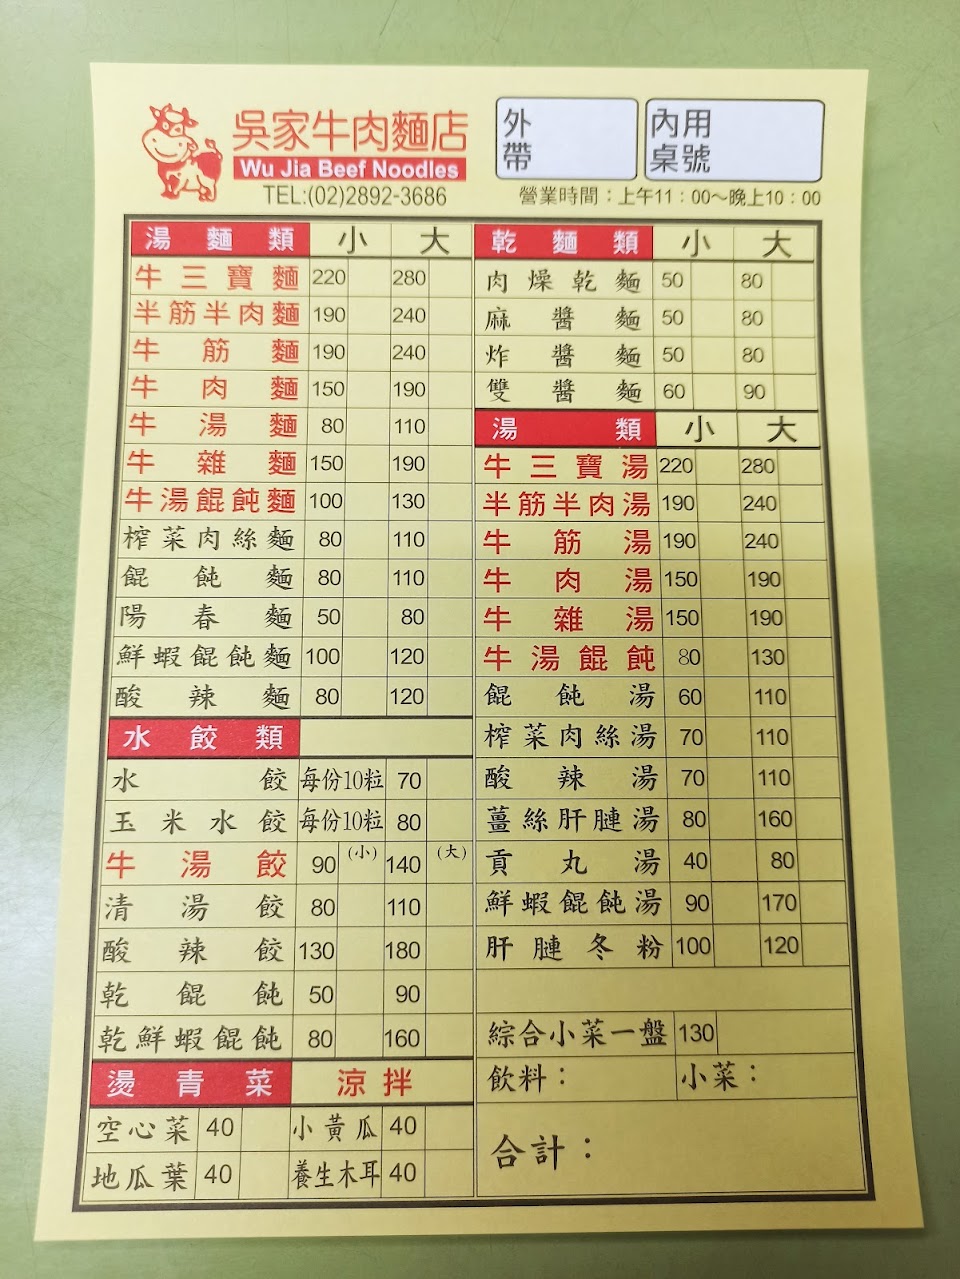 吳家牛肉麵店
Wu Jia Beef Noodles
TEL:(02)2892-3686
外帶
內用桌號
營業時間：上午11：00～晚上10：00
湯麵類 小 大
牛三寶麵 220 280
半筋半肉麵 190 240
牛筋麵 190 240
牛肉麵 150 190
牛湯麵 80 110
牛雜麵 150 190
牛湯餛飩麵 100 130
榨菜肉絲麵 80 110
餛飩麵 80 110
陽春麵 50 80
鮮蝦餛飩麵 100 120
酸辣麵 80 120
水餃類
水餃 每份10粒 70
玉米水餃 每份10粒 80
牛湯餃 90 (小) 140 (大)
清湯餃 80 110
酸辣餃 130 180
乾餛飩 50 90
乾鮮蝦餛飩 80 160
燙青菜 涼拌
空心菜 40 小黃瓜 40
地瓜葉 40 養生木耳 40
乾麵類 小 大
肉燥乾麵 50 80
麻醬麵 50 80
炸醬麵 50 80
雙醬麵 60 90
湯類 小 大
牛三寶湯 220 280
半筋半肉湯 190 240
牛筋湯 190 240
牛肉湯 150 190
牛雜湯 150 190
牛湯餛飩 80 130
餛飩湯 60 110
榨菜肉絲湯 70 110
酸辣湯 70 110
薑絲肝腱湯 80 160
貢丸湯 40 80
鮮蝦餛飩湯 90 170
肝腱冬粉 100 120
綜合小菜一盤 130
飲料： 小菜：
合計：